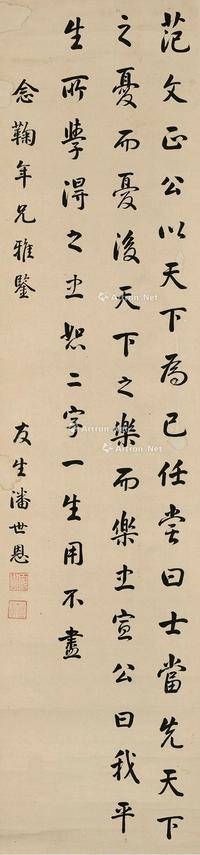 范文正公以天下為己任嘗曰士當先天下
之憂而憂後天下之樂而樂忠宣公曰我平
生所學得之忠恕二字一生用不盡
念鞠年兄雅鑒
友生潘世恩
Artron.Net